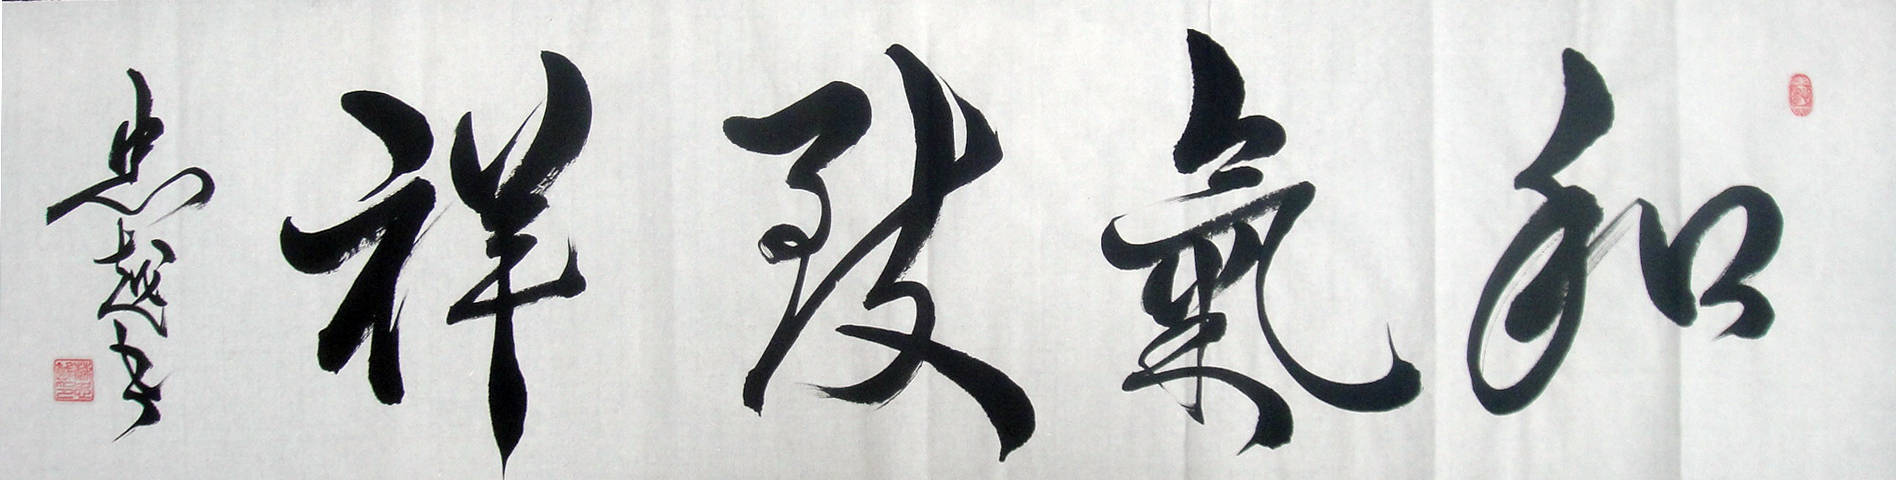 和氣致祥
忠越书